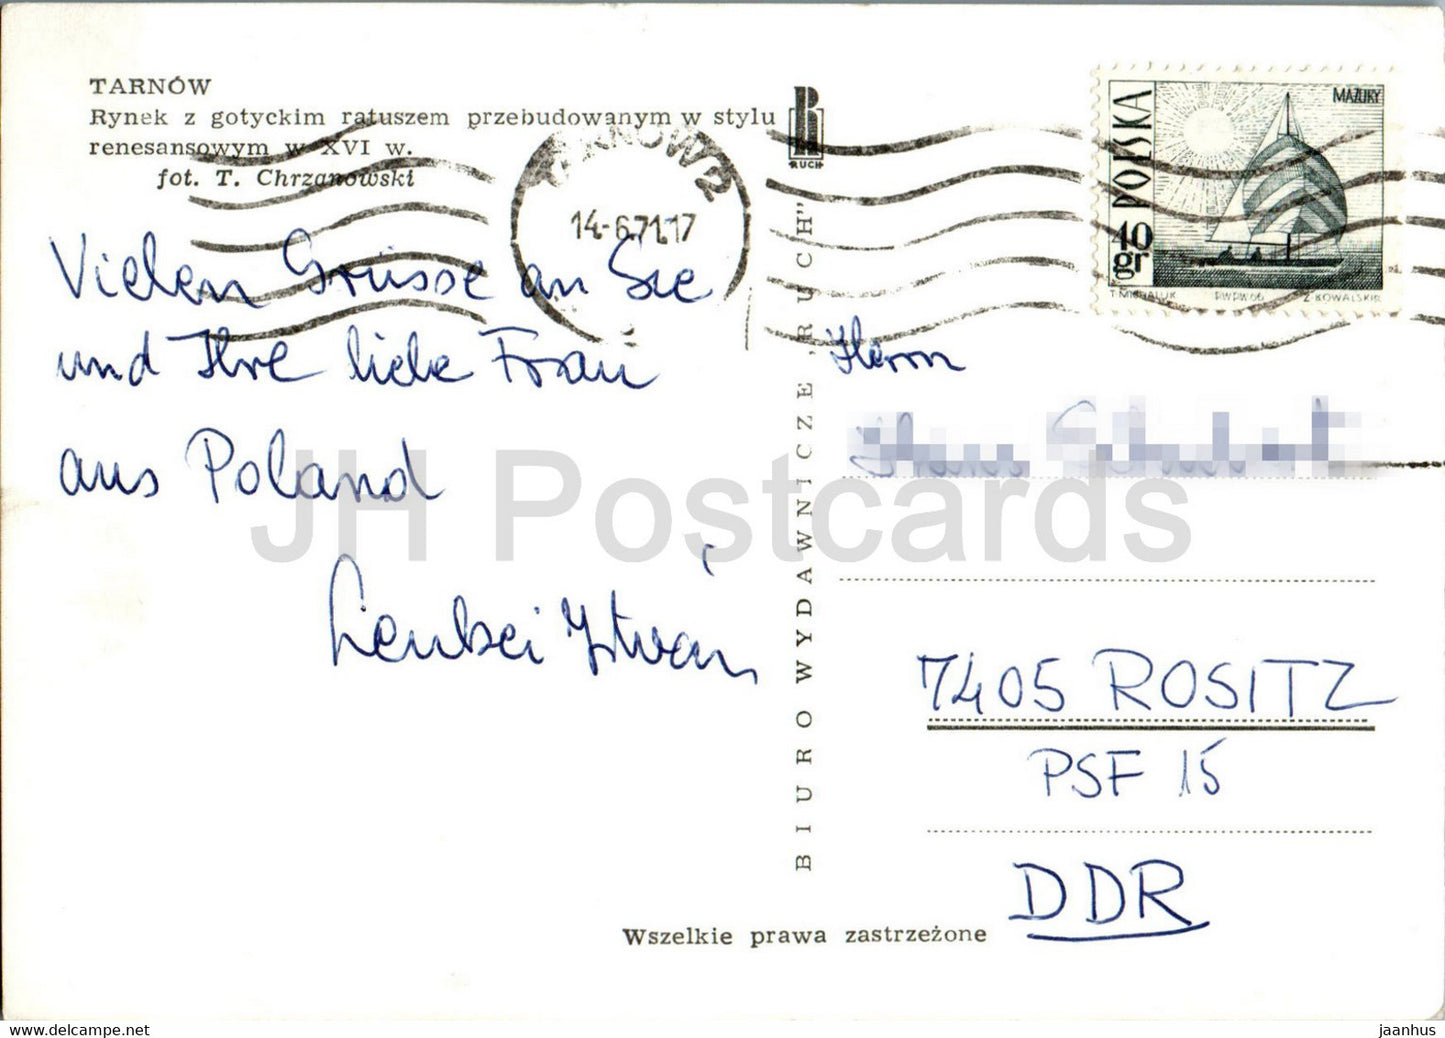 TARNÓW
Rynek z gotyckim ratuszem przebudowanym w stylu
renesansowym w XVI w.
fot. T. Chrzanowski
RUCH
TARNÓW 2
14-6.71.17
POLSKA
MAZURY
40 gr
T. MICHALUK PWPW.66 Z. KOWALSKI
Vielen Grüsse an Sie
und Ihre liebe Frau
aus Poland
István
BIURO WYDAWNICZE „RUCH"
Herrn
7405 ROSITZ
PSF 15
DDR
Wszelkie prawa zastrzeżone
JH Postcards
www.delcampe.net
jaanhus